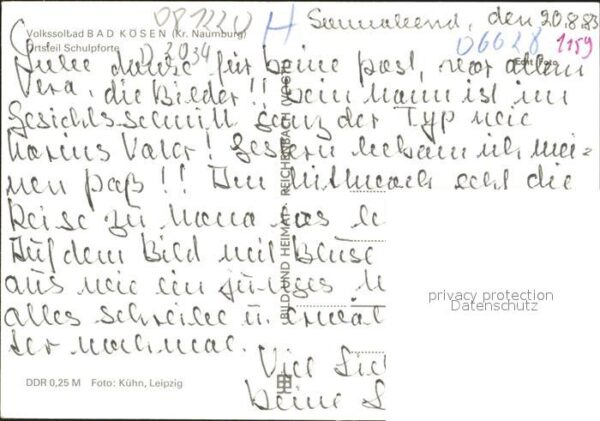 081220 H Sonnabend, den 20.8.83
Volkssolbad BAD KÖSEN (Kr. Naumburg)
06628 1159
Ortsteil Schulpforte
D 2034
Echt Foto
Gulie danke für Deine Post, vor allem
Vera, die Bilder!! Dein Mann ist im
Gesichtsschnitt ganz der Typ wie
Marins Vater! Gestern bekam ich mei-
nen Paß!! Am Mittwoch geht die
Reise zu Mama
Auf dem Bild mit Bluse
aus wie ein junges M
alles schreibe u. erwa
der nochmal.
Viel Lie
Deine
BILD UND HEIMAT REICHENBACH (VOGTL)
privacy protection
Datenschutz
DDR 0,25 M Foto: Kühn, Leipzig